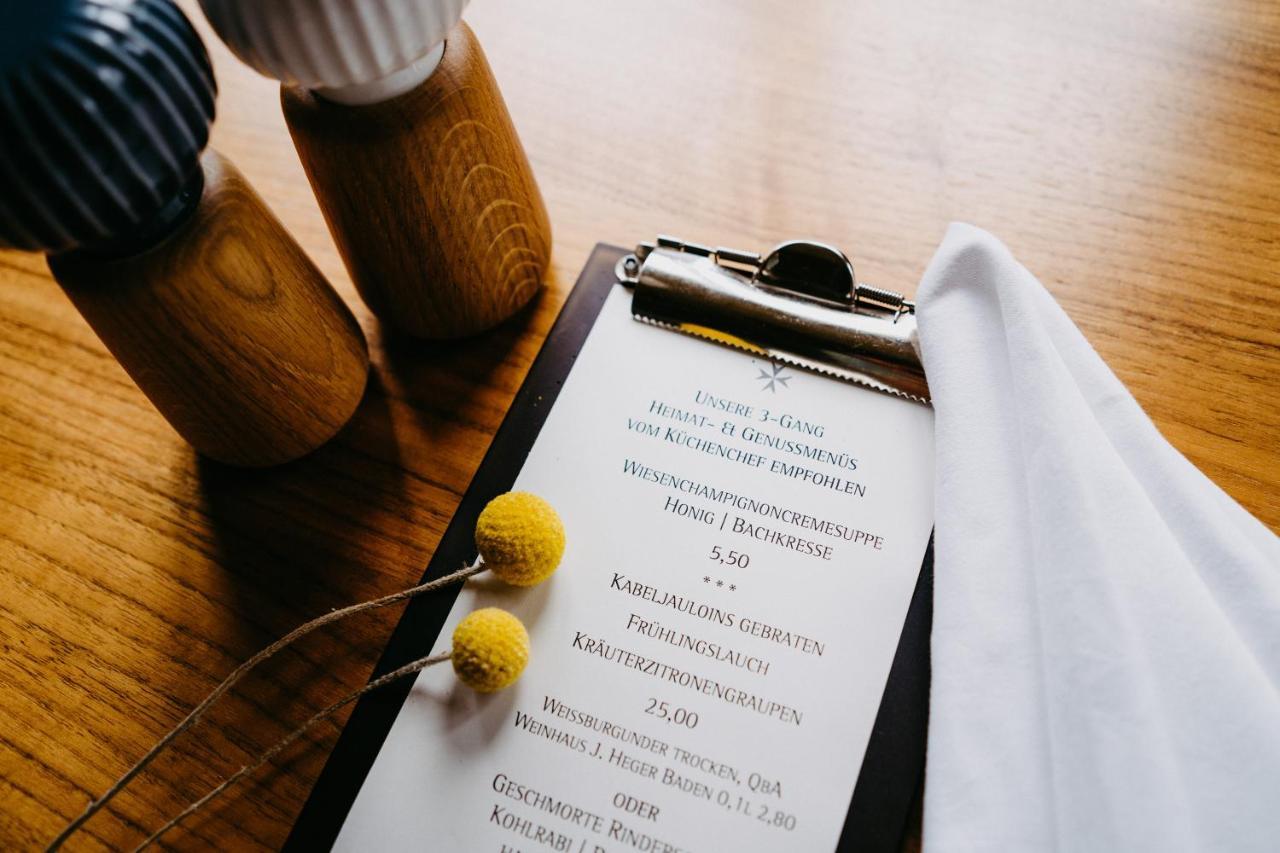 Unsere 3-Gang
Heimat- & Genussmenüs
vom Küchenchef empfohlen
Wiesenchampignoncremesuppe
Honig | Bachkresse
5,50
***
Kabeljauloins gebraten
Frühlingslauch
Kräuterzitronengraupen
25,00
Weissburgunder trocken, QbA
Weinhaus J. Heger Baden 0,1l 2,80
oder
Geschmorte
Kohlrabi |